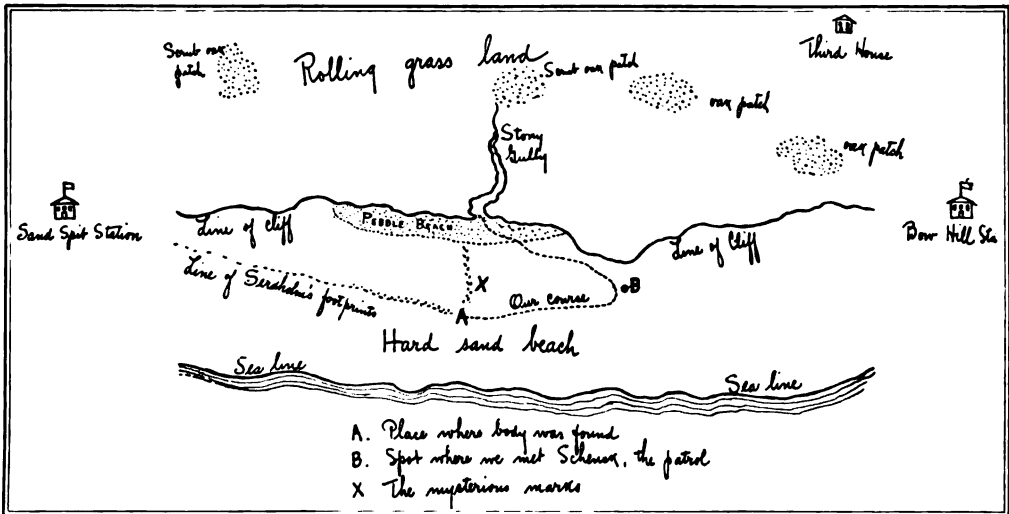 Third House
Scrub oak
patch
Rolling grass land
Scrub oak patch
oak patch
Stony
Gully
oak patch
Sand Spit Station
Line of Cliff
PEBBLE BEACH
Line of Cliff
Bow Hill Sta
Line of Seraholm's footprints
X
B
Our course
A
Hard sand beach
Sea line
Sea line
A. Place where body was found
B. Spot where we met Schenck, the patrol
X The mysterious marks